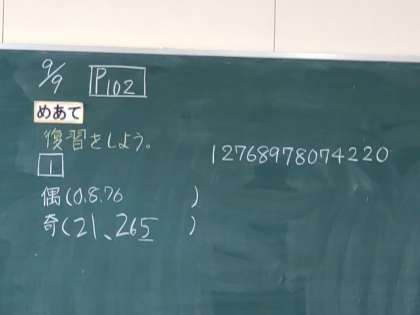 9/9 P102
めあて
復習をしよう。
1 12768978074220
偶(0.8.76 )
奇(21、265 )